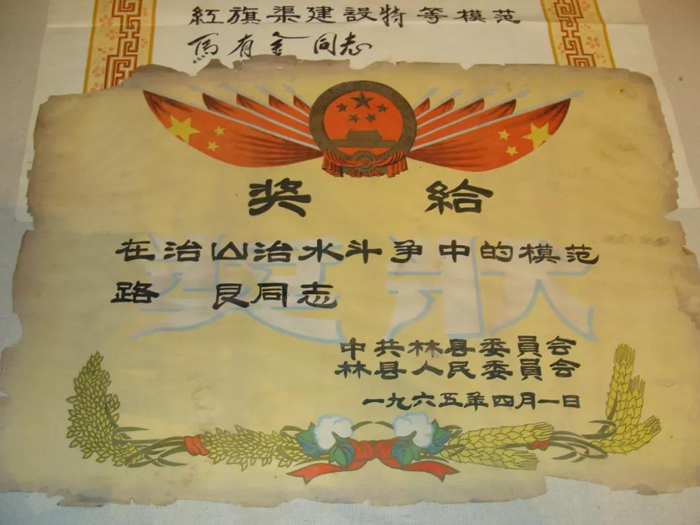 紅旗渠建設特等模范
馬有金同志
奖給
在治山治水斗争中的模范
路 艮同志
中共林县委員会
林县人民委員会
一九六五年四月一日
奬狀